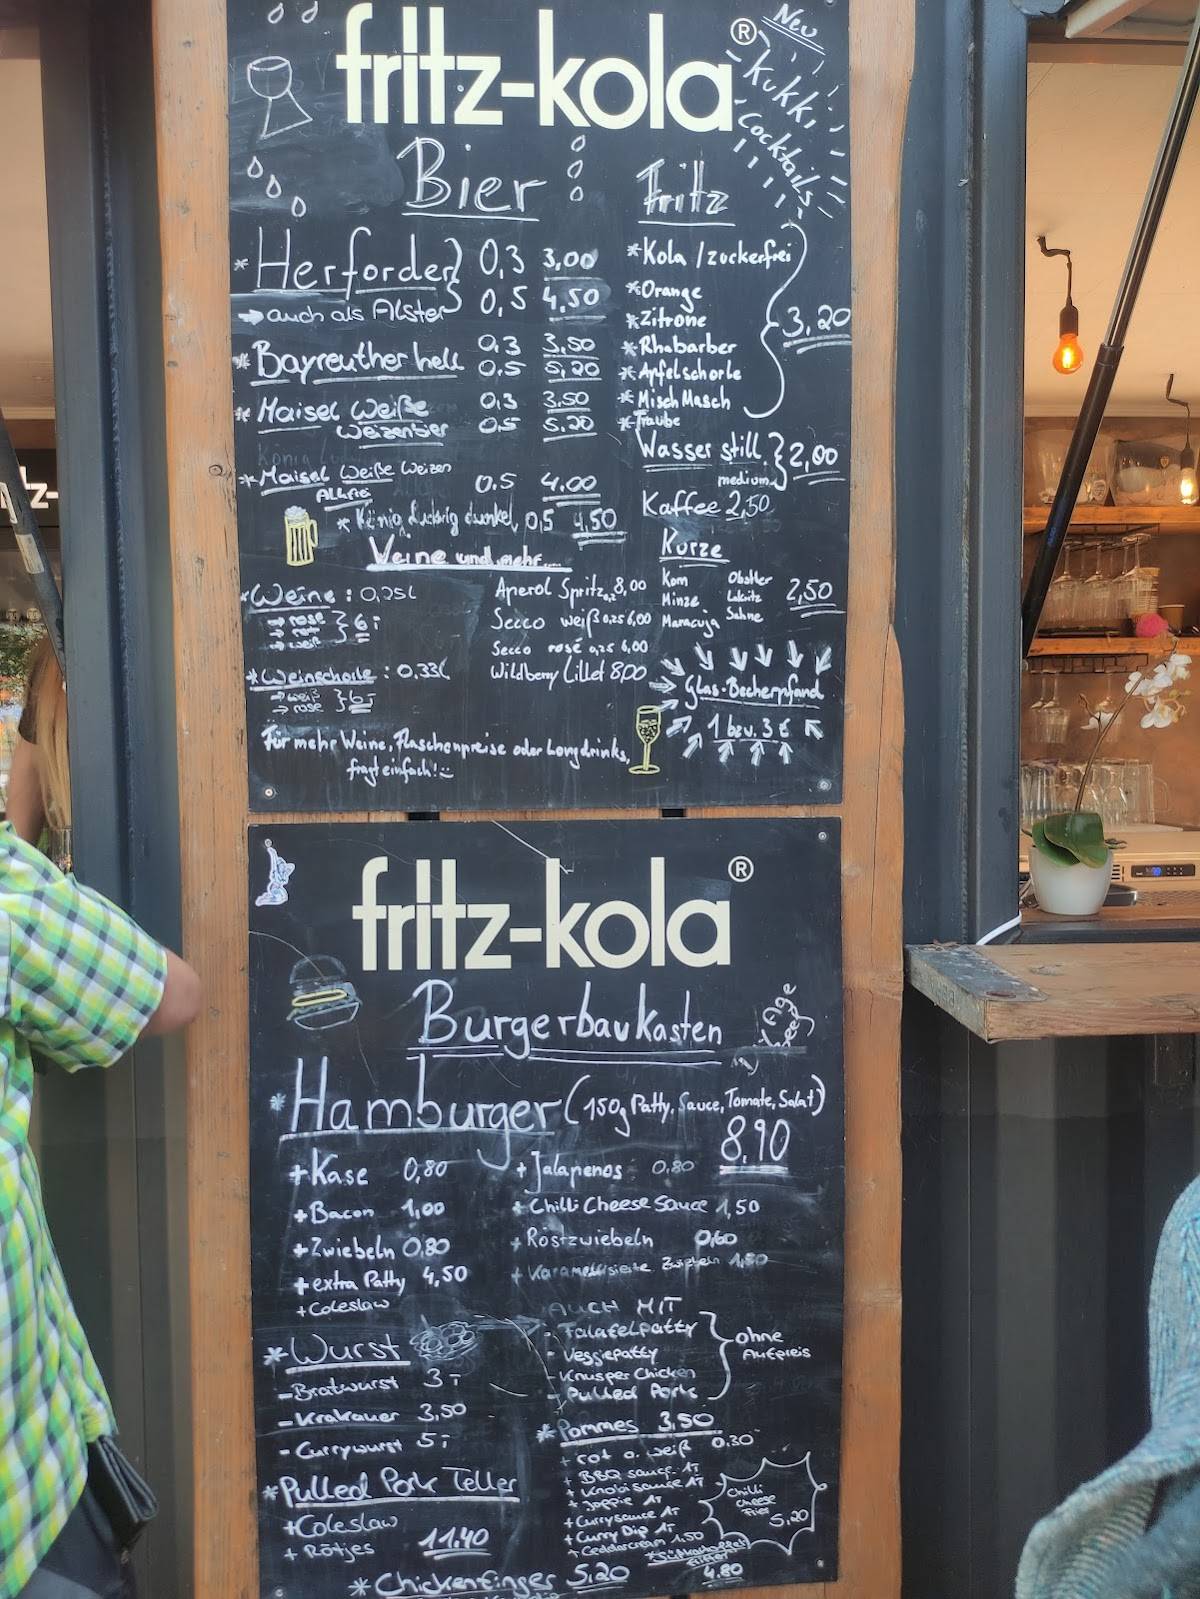 fritz-kola®
Neu
Kukki
Cocktails
Bier
* Herforder 0,3 3,00
→ auch als Alster 0,5 4,50
* Bayreuther hell 0,3 3,50
0,5 5,20
* Maisel Weiße 0,3 3,50
Weizenbier 0,5 5,20
* Maisel Weiße Weizen
Alkfrei 0,5 4,00
* König Ludwig dunkel 0,5 4,50
Fritz
* Kola / zuckerfrei
* Orange
* Zitrone
* Rhabarber
* Apfelschorle
* MischMasch
* Traube
3,20
Wasser still
medium
2,00
Kaffee 2,50
Weine und mehr....
* Weine : 0,25L
→ rose
→ rot
→ weiß
6,-
* Weinschorle : 0,33L
→ weiß
→ rose
6,-
Aperol Spritz 0,2 8,00
Secco weiß 0,25 6,00
Secco rosé 0,25 6,00
Wildberry Lillet 8,00
Kurze
Korn Obstler
Minze Lakritz
Maracuja Sahne
2,50
Glas-Becherpfand
1 bzw. 3 €
Für mehr Weine, Flaschenpreise oder Longdrinks,
fragt einfach!
fritz-kola®
Burgerbaukasten
* Hamburger (150g Patty, Sauce, Tomate, Salat)
8,90
+ Käse 0,80
+ Bacon 1,00
+ Zwiebeln 0,80
+ extra Patty 4,50
+ Coleslaw
+ Jalapenos 0,80
+ Chilli Cheese Sauce 1,50
+ Röstzwiebeln 0,60
+ Karamellisierte Zwiebeln 1,50
AUCH MIT
- Falafelpatty
- Veggiepatty
- Knusper Chicken
- Pulled Pork
ohne
Aufpreis
* Wurst
- Bratwurst 3,-
- Krakauer 3,50
- Currywurst 5,-
* Pulled Pork Teller
+ Coleslaw
+ Rötjes
11,40
* Pommes 3,50
+ rot o. weiß 0,30
+ BBQ sauce 1,-
+ Knobisauce 1,-
+ Joppie 1,-
+ Currysauce 1,-
+ Curry Dip 1,-
+ Ceddarcream 1,50
Chilli
Cheese
Fries
5,20
* Süßkartoffel
4,80
* Chickenfinger 5,20